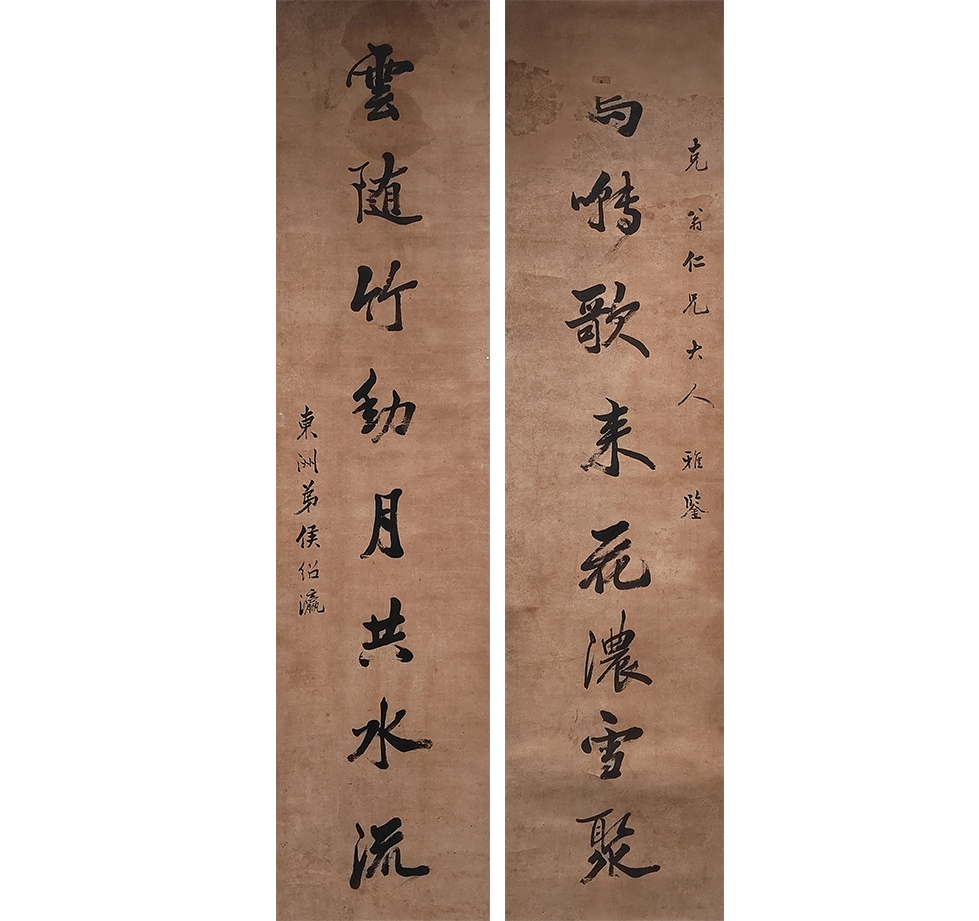 克翁仁兄大人 雅鑒
鳥囀歌来花濃雪聚
雲随竹動月共水流
東洲弟侯紹瀛